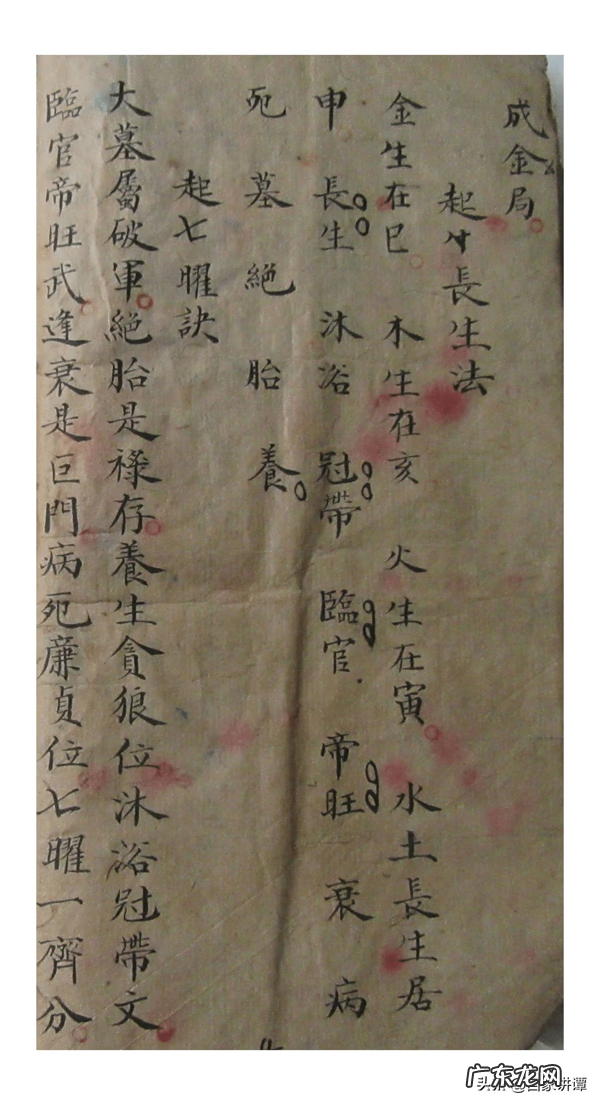 成金局
起长生法
金生在巳 木生在亥 火生在寅 水土長生居
申 長生 沐浴 冠帶 臨官 帝旺 衰 病
死 墓 絕 胎 養
起七曜訣
大墓屬破軍絕胎是祿存養生貪狼位沐浴冠帶文
臨官帝旺武逢衰是巨門病死廉貞位七曜一齊分
广东龙网